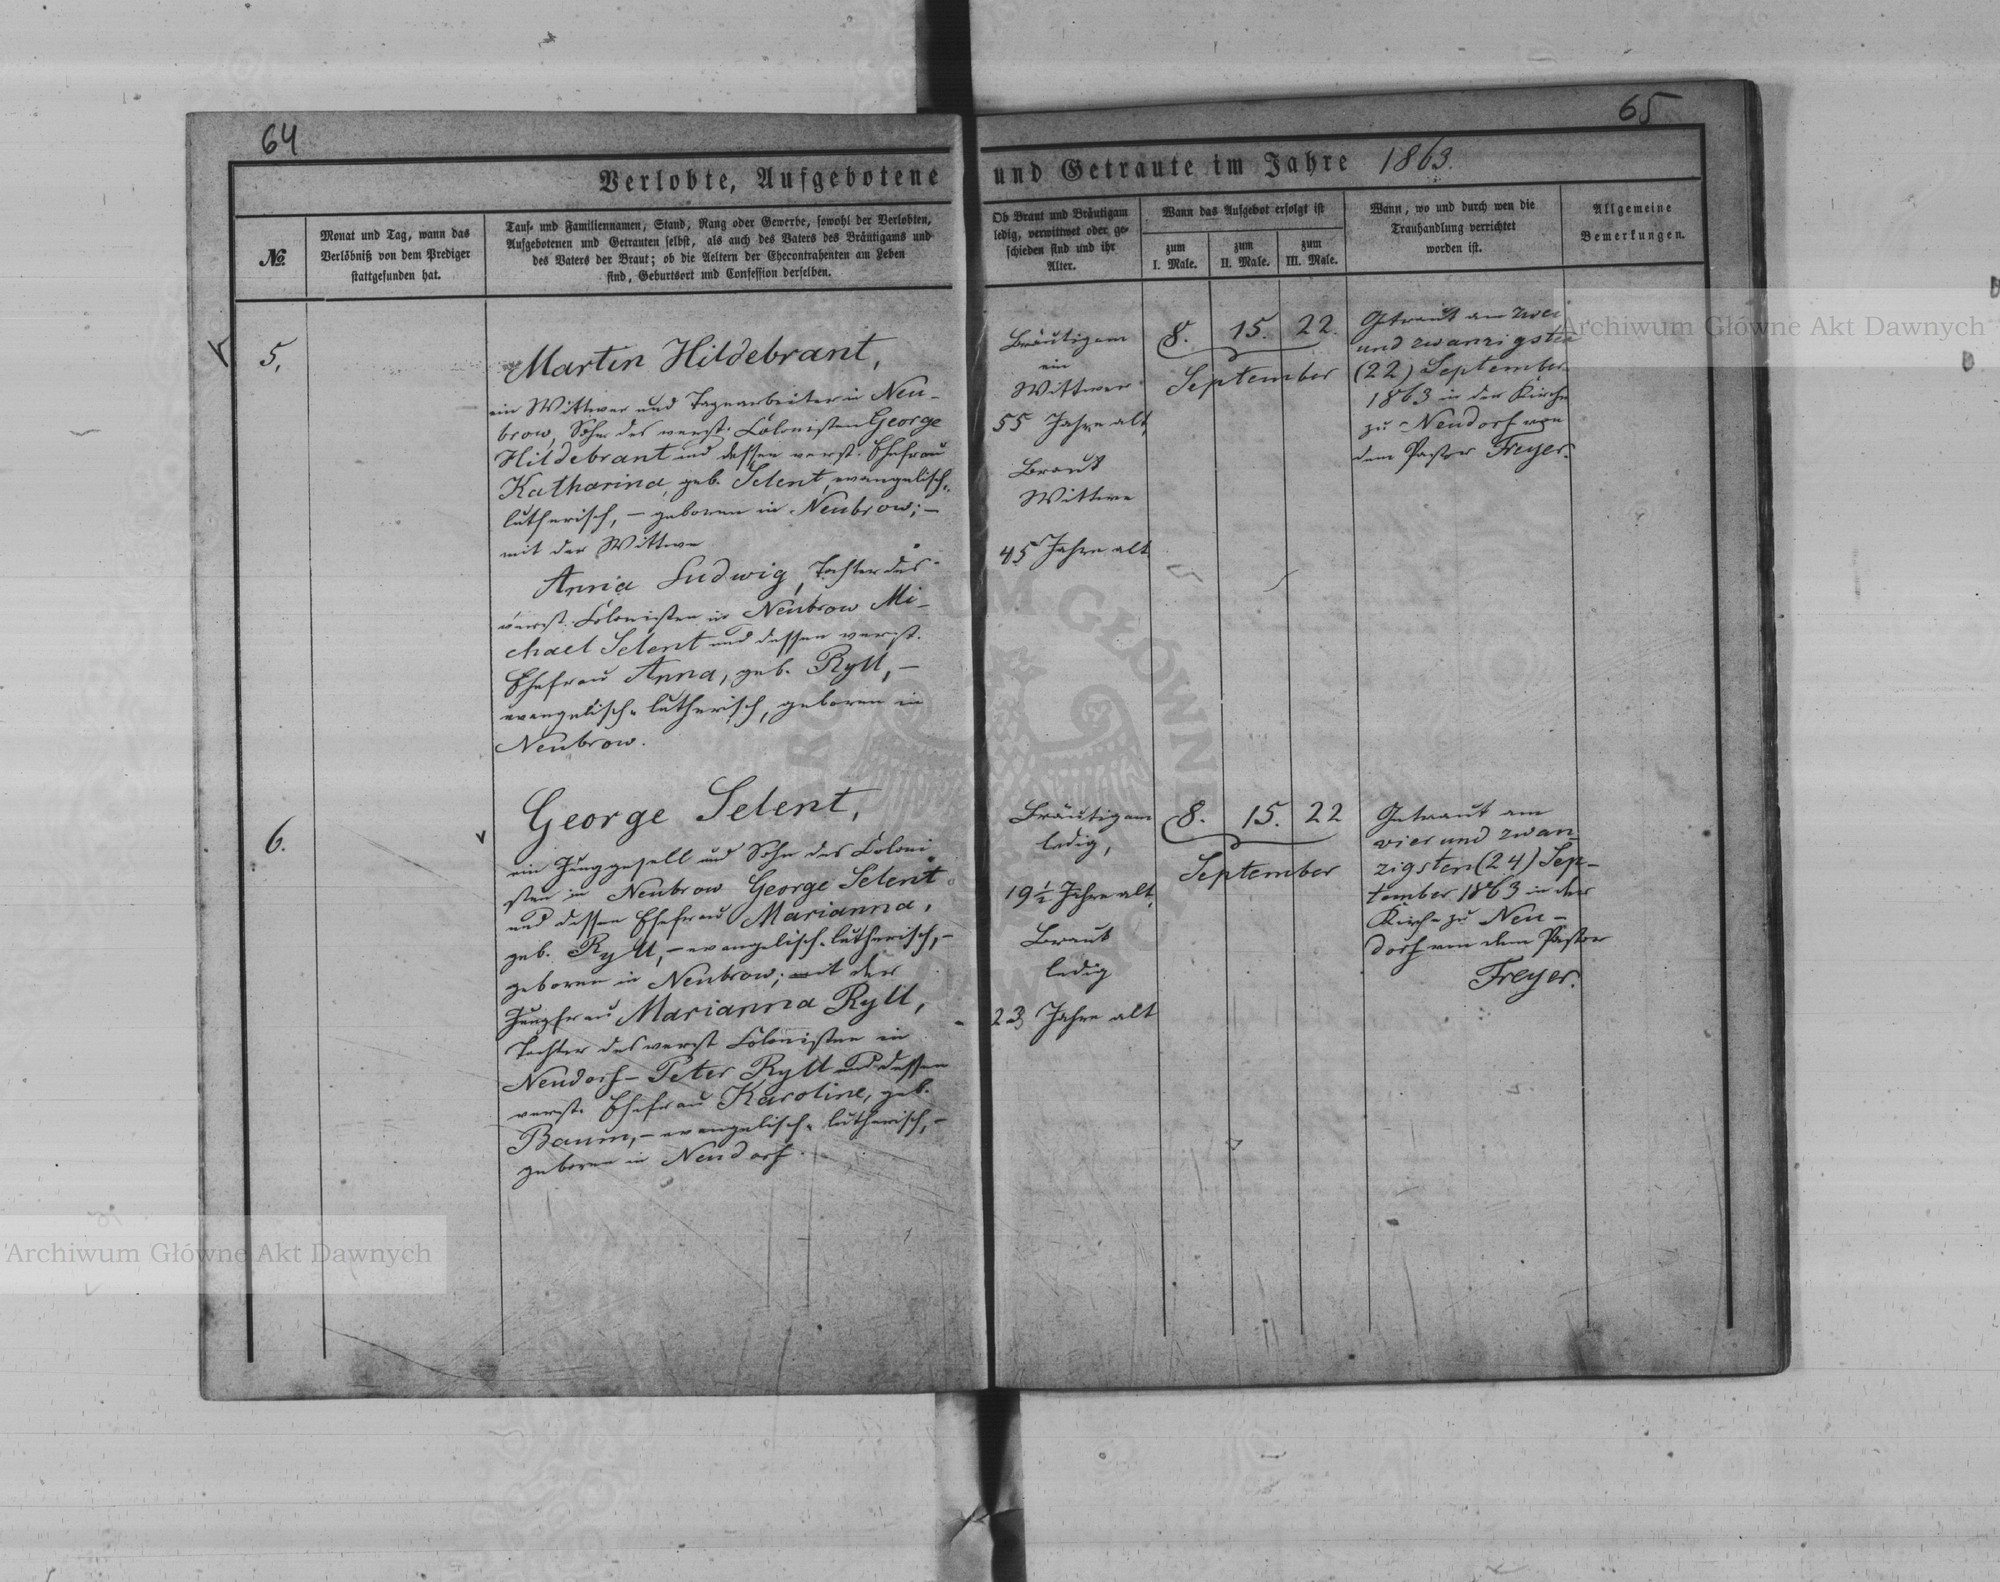 64
65
Verlobte, Aufgebotene und Getraute im Jahre 1863.
№.
Monat und Tag, wann das
Verlöbniß von dem Prediger
stattgefunden hat.
Tauf- und Familiennamen, Stand, Rang oder Gewerbe, sowohl der Verlobten,
Aufgebotenen und Getrauten selbst, als auch des Vaters des Bräutigams und
des Vaters der Braut; ob die Aeltern der Ehecontrahenten am Leben
sind, Geburtsort und Confession derselben.
Ob Braut und Bräutigam
ledig, verwittwet oder ge-
schieden sind und ihr
Alter.
Wann das Aufgebot erfolgt ist
zum
I. Male.
zum
II. Male.
zum
III. Male.
Wann, wo und durch wen die
Trauhandlung verrichtet
worden ist.
Allgemeine
Bemerkungen.
5.
Martin Hildebrant,
ein Wittwer und Tagearbeiter in Neu-
brow, Sohn des verst. Colonisten George
Hildebrant und dessen verst. Ehefrau
Katharina, geb. Selent, evangelisch-
lutherisch, – geboren in Neubrow; –
mit der Wittwe
Anna Ludwig, Tochter des
verst. Colonisten in Neubrow Mi-
chael Selent und dessen verst.
Ehefrau Anna, geb. Ryll, –
evangelisch-lutherisch, geboren in
Neubrow.
Bräutigam
ein
Wittwer
55 Jahre alt,
Braut
Wittwe
45 Jahre alt
8. 15. 22.
September
Getraut am zwei
und zwanzigsten
(22) September
1863 in der Kirche
zu Neudorf von
dem Pastor Freyer.
6.
George Selent,
ein Junggesell und Sohn des Coloni
sten in Neubrow George Selent
und dessen Ehefrau Marianna,
geb. Ryll, – evangelisch-lutherisch, –
geboren in Neubrow; mit der
Jungfrau Marianna Ryll,
Tochter des verst Colonisten in
Neudorf – Peter Ryll und dessen
verst. Ehefrau Karoline, geb.
Baum, – evangelisch-lutherisch, –
geboren in Neudorf.
Bräutigam
ledig,
19 1/2 Jahre alt,
Braut
ledig
23 Jahre alt
8. 15. 22
September
Getraut am
vier und zwan-
zigsten (24) Sep-
tember 1863 in der
Kirche zu Neu-
dorf von dem Pastor
Freyer.
Archiwum Główne Akt Dawnych
Archiwum Główne Akt Dawnych